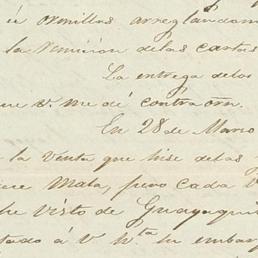 ormillas arreglandom
la remision de las cartas
La entrega de los
que V. me dé contra orn.
En 28 de Marzo
la venta que hise de las
Mata, pero cada
he visto de Guayaqui
tado á V hta su embar